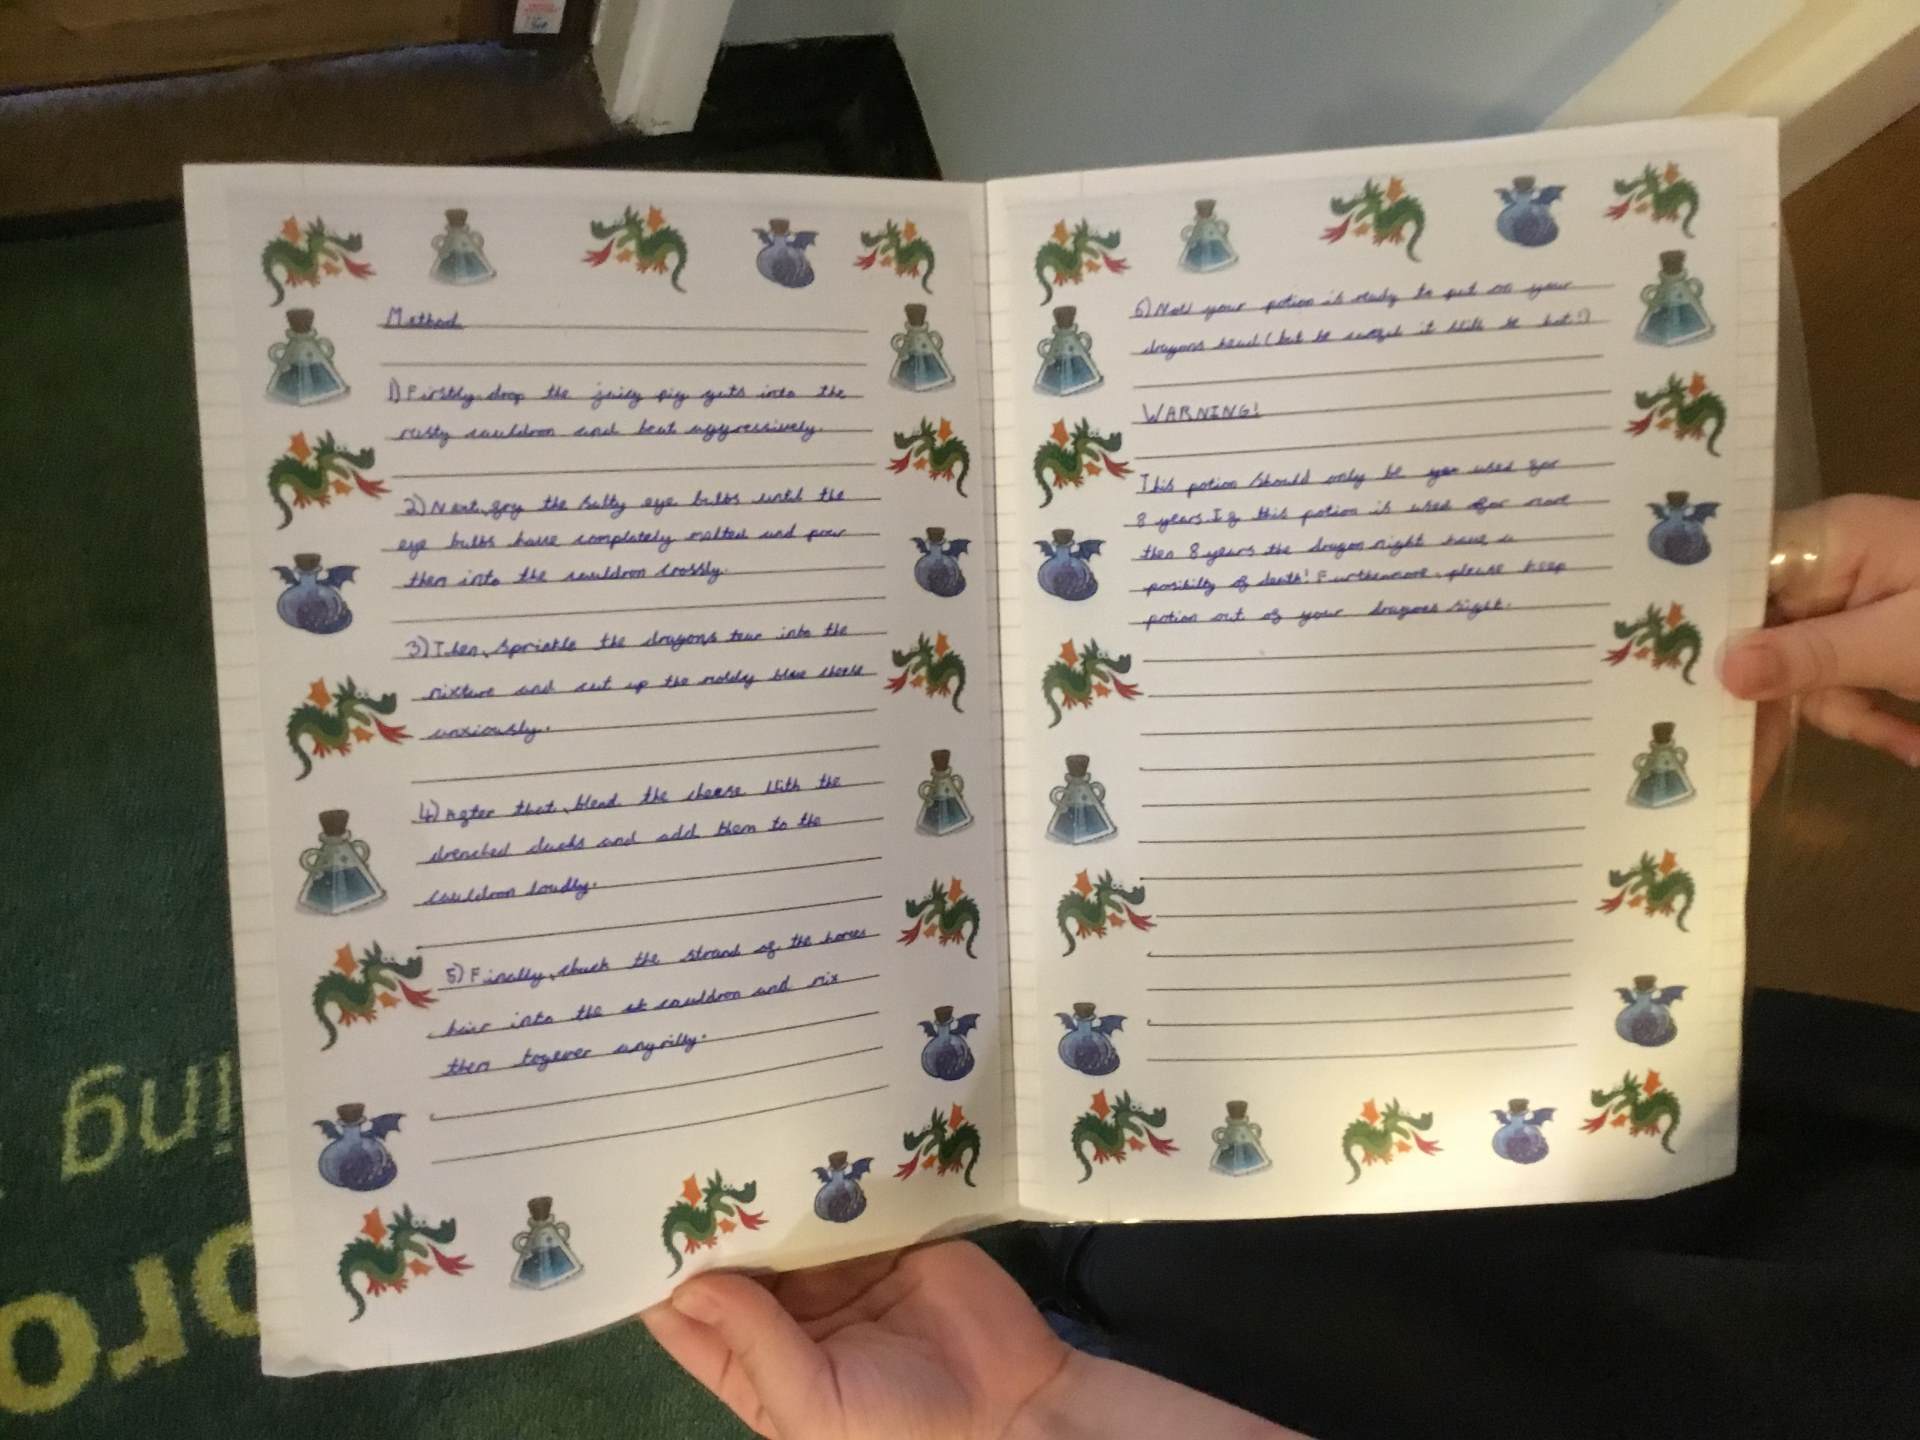 Method
1) Firstly, drop the juicy pig guts into the
rusty cauldron and beat aggressively.
2) Next, fry the salty eye bulbs until the
eye bulbs have completely melted and pour
them into the cauldron crossly.
3) Then, sprinkle the dragons tear into the
mixture and cut up the moldy blue cheese
anxiously.
4) After that, blend the cheese with the
drenched ducks and add them to the
cauldron loudly.
5) Finally, chuck the strand of the horses
hair into the cauldron and mix
them togever angrilly.
6) Now your potion is ready to put on your
dragons head (but be carefull it will be hot!)
WARNING!
This potion should only be used for
8 years. If this potion is used for more
then 8 years the dragon might have a
posibilty of death! Furthermore, please keep
potion out of your dragons sight.
ing
oro